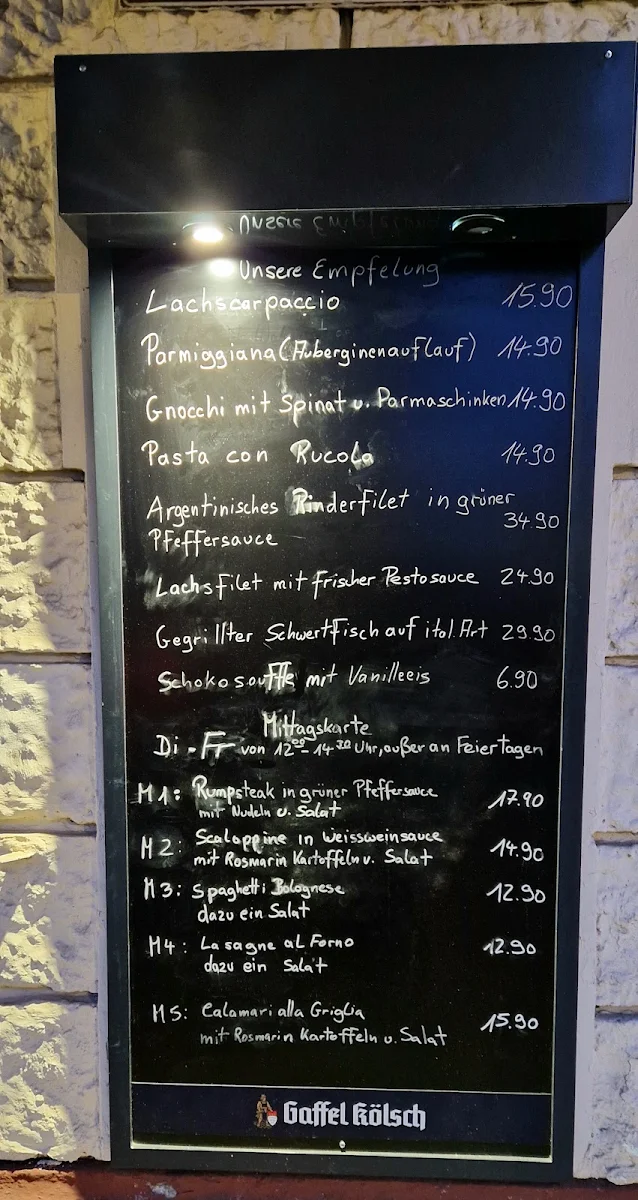 Unsere Empfelung
Lachscarpaccio 15.90
Parmiggiana (Auberginenauflauf) 14.90
Gnocchi mit Spinat u. Parmaschinken 14.90
Pasta con Rucola 14.90
Argentinisches Rinderfilet in grüner
34.90
Pfeffersauce
Lachsfilet mit frischer Pestosauce 24.90
Gegrillter Schwertfisch auf ital. Art 29.90
Schokosouffle mit Vanilleeis 6.90
Mittagskarte
Di - Fr von 12⁰⁰- 14³⁰ Uhr, außer an Feiertagen
M1: Rumpsteak in grüner Pfeffersauce 17.90
mit Nudeln u. Salat
M2: Scaloppine in Weissweinsauce 14.90
mit Rosmarin Kartoffeln u. Salat
M3: Spaghetti Bolognese 12.90
dazu ein Salat
M4: Lasagne al Forno 12.90
dazu ein Salat
M5: Calamari alla Griglia 15.90
mit Rosmarin Kartoffeln u. Salat
Gaffel Kölsch